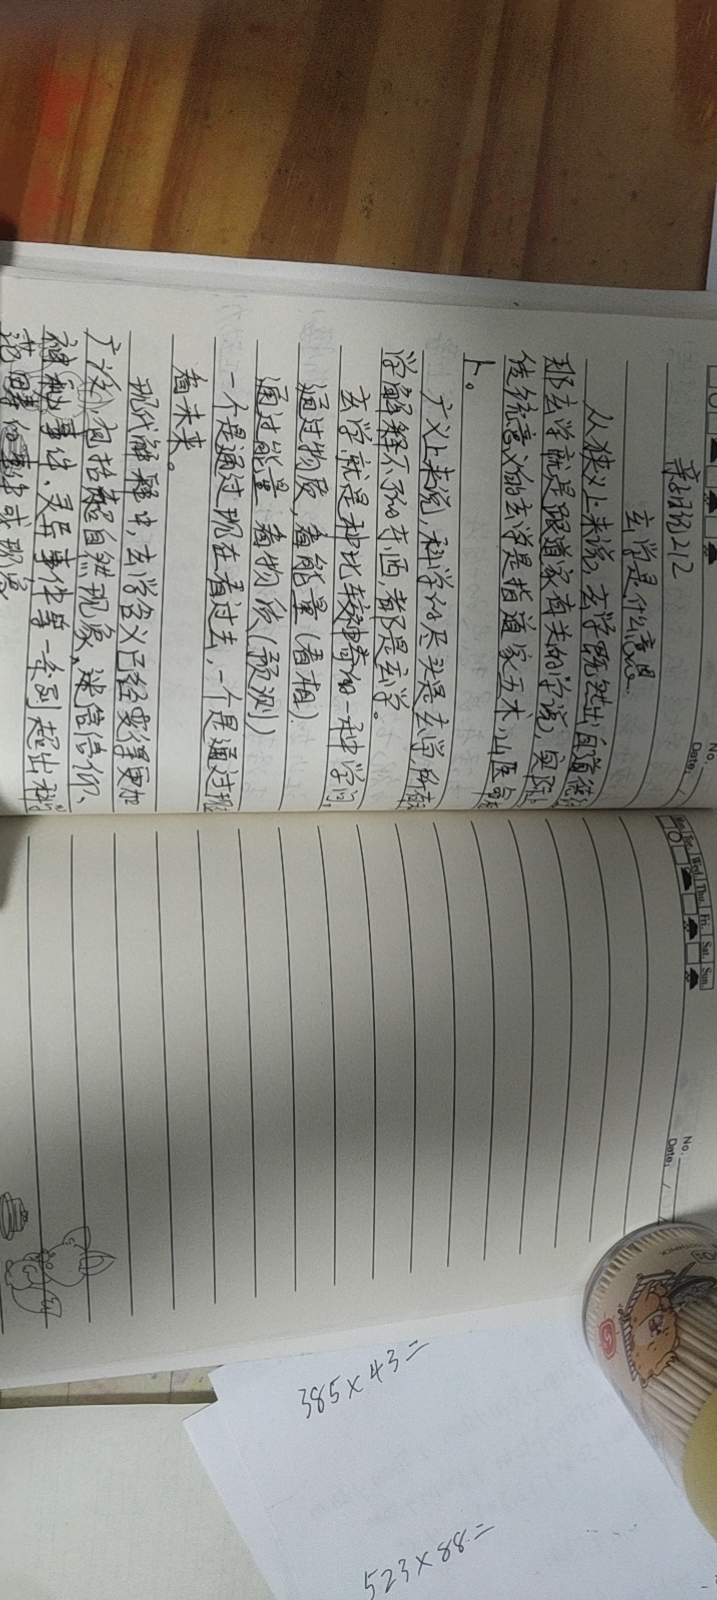 No.
Date.
玄学是什么意思
从狭义上来说,玄学既然出自道德经
那玄学就是跟道家有关的学说,实际上
传统意义的玄学是指道家五术,山医命相
卜。
广义上来说,科学的尽头是玄学,所有科
学解释不了的东西,都是玄学。
玄学就是一种比较神奇的一种学问,
通过物质,看能量(看相)
通过能量看物质(预测)
一个是通过现在看过去,一个是通过现在
看未来。
现代解释中,玄学含义已经变得更加
广泛 包括超自然现象,迷信信仰、
神秘事件、灵异事件等一系列超出科学
范畴的事件或现象
Mo. Tue. Wed. Thu. Fri. Sat. Sun.
No.
Date.
385×43=
523×88=